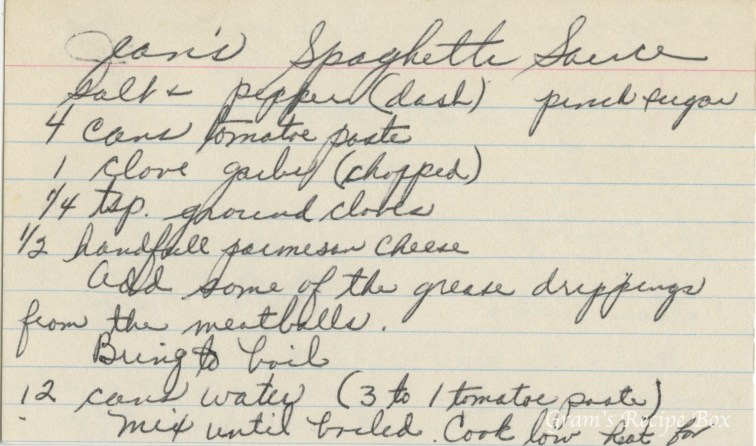 Jean's Spaghetti Sauce
Salt & pepper (dash) pinch sugar
4 cans tomatoe paste
1 clove garlic (chopped)
1/4 tsp. ground cloves
1/2 handfull parmesan cheese
Add some of the grease drippings
from the meatballs.
Bring to boil
12 cans water (3 to 1 tomatoe paste)
Mix until boiled. Cook low heat for
Gram's Recipe Box